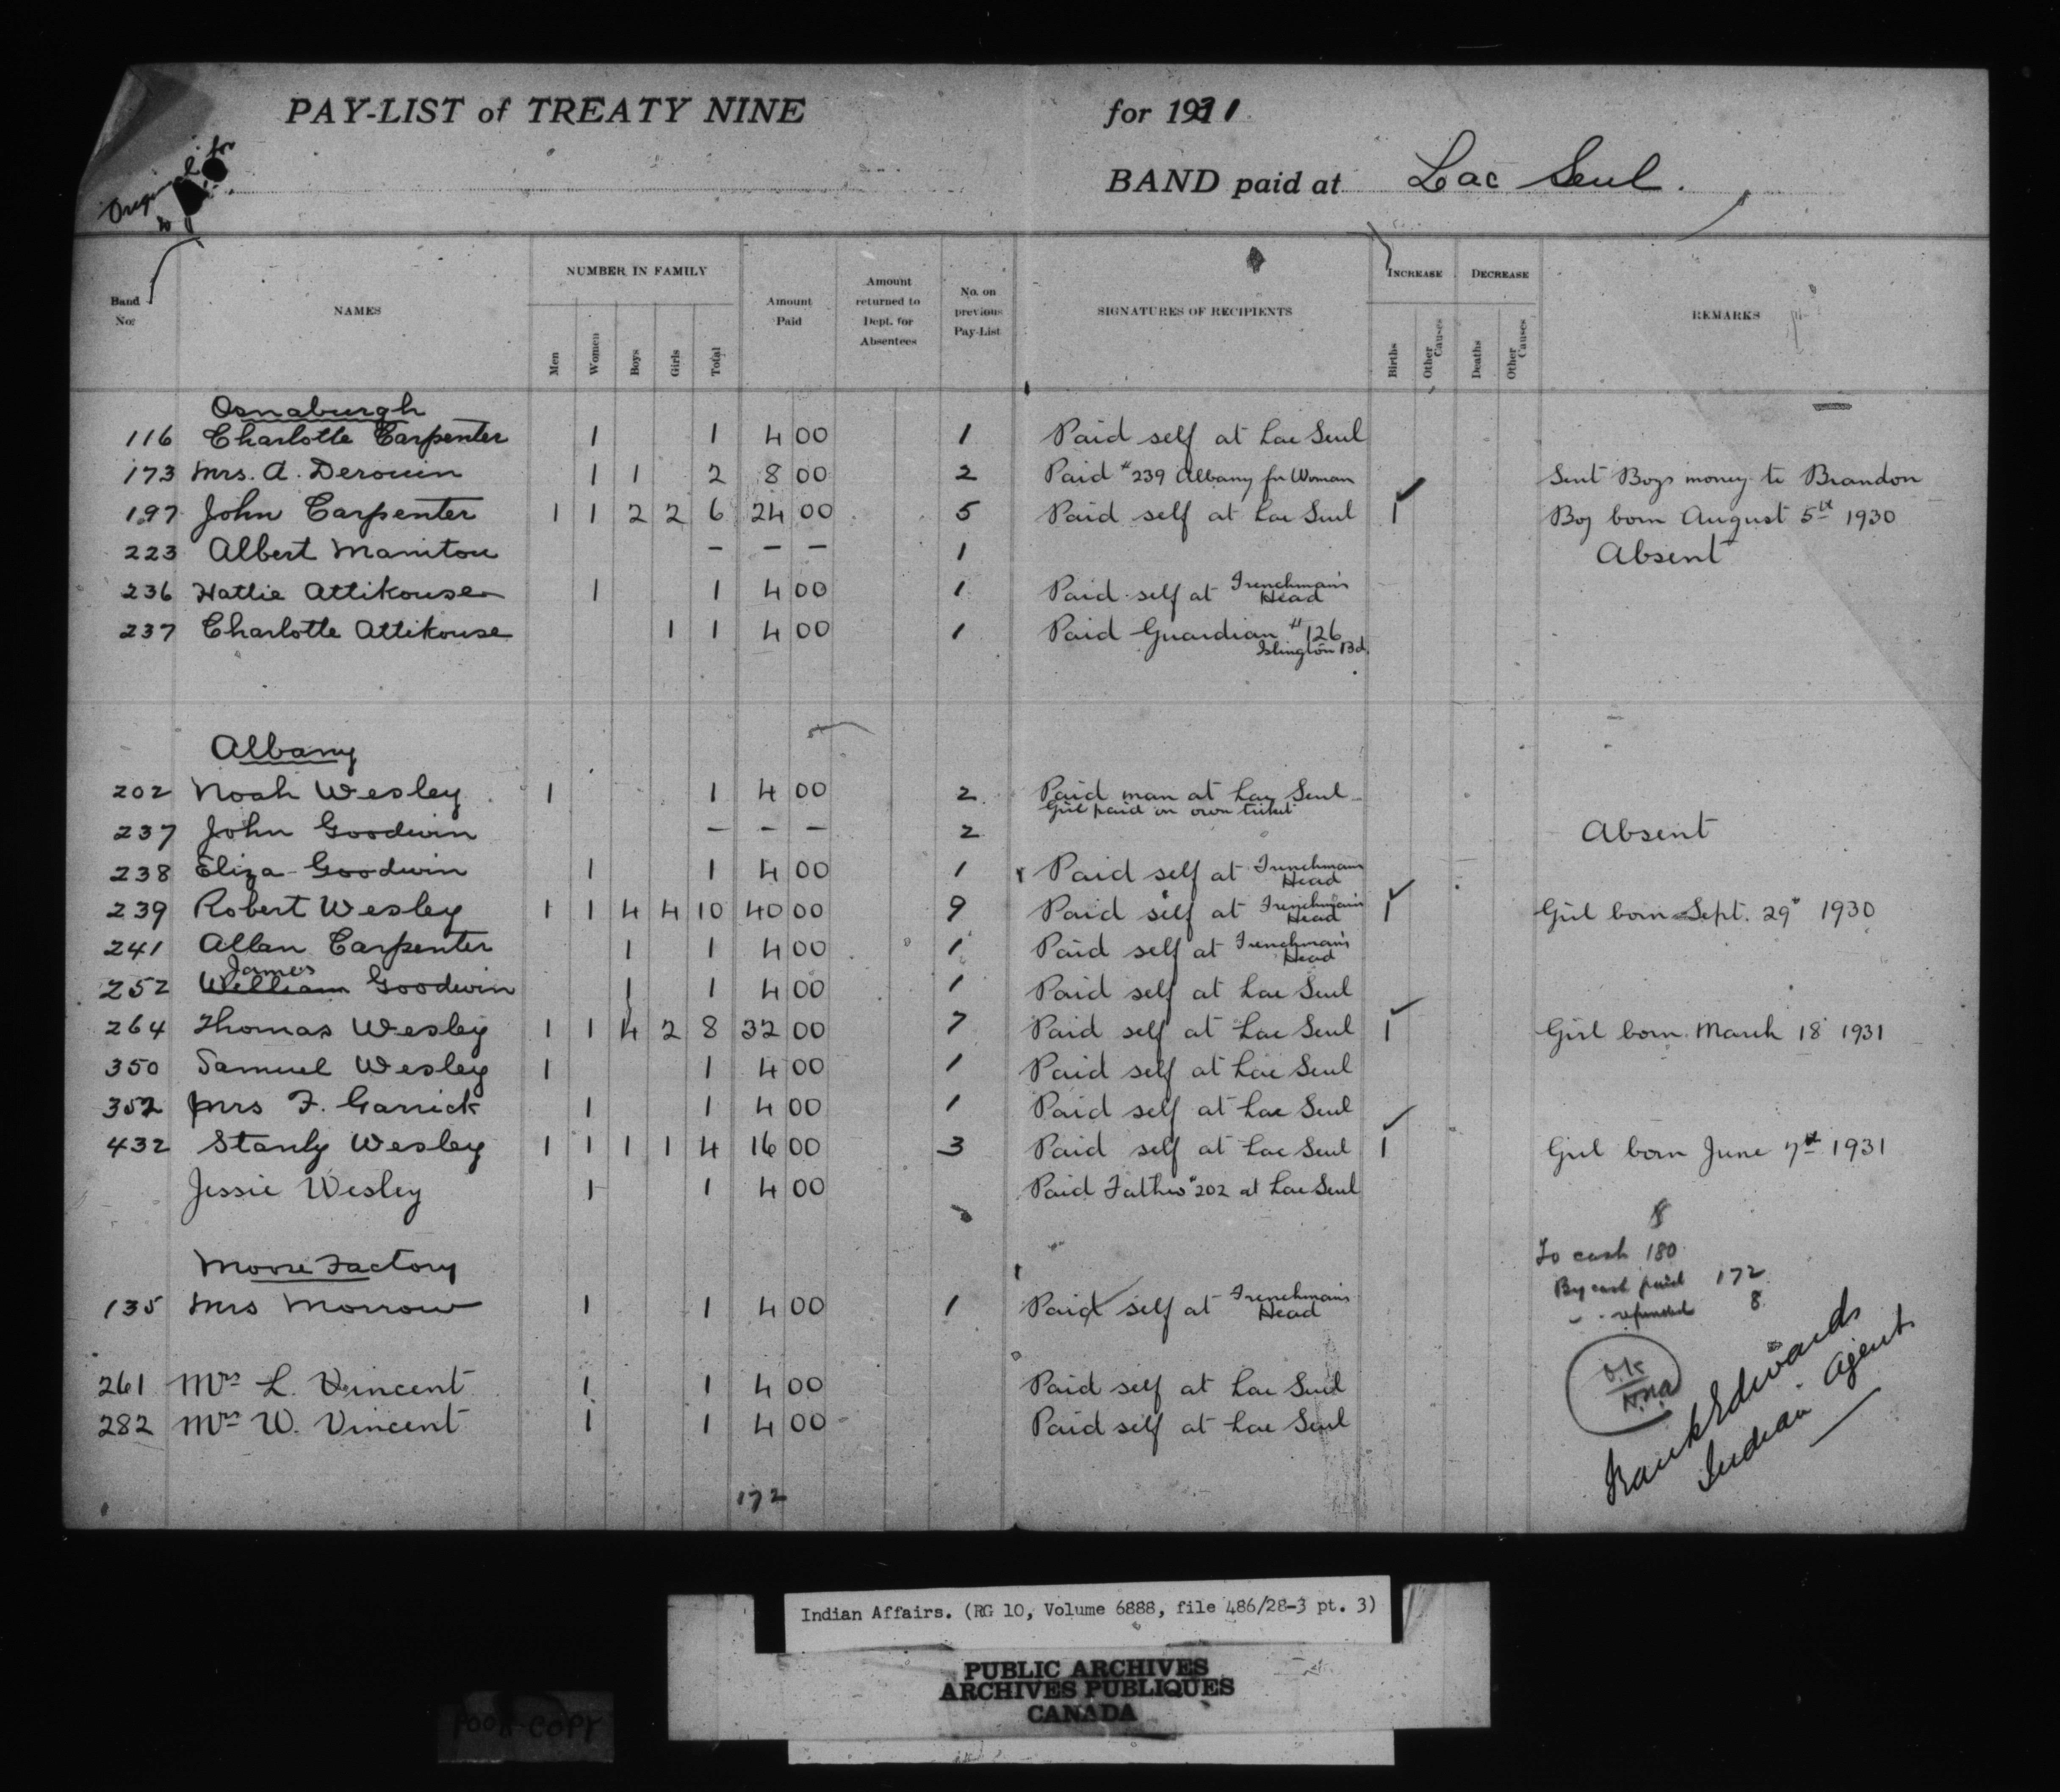 PAY-LIST of TREATY NINE for 1931
Original for
BAND paid at Lac Seul.
Band No. NAMES NUMBER IN FAMILY Men Women Boys Girls Total Amount Paid Amount returned to Dept. for Absentees No. on previous Pay-List SIGNATURES OF RECIPIENTS INCREASE Births Other Causes DECREASE Deaths Other Causes REMARKS
Osnaburgh
116 Charlotte Carpenter 1 1 4 00 1 Paid self at Lac Seul
173 Mrs. A. Derouin 1 1 2 8 00 2 Paid #239 Albany for Woman Sent Boys money to Brandon
197 John Carpenter 1 1 2 2 6 24 00 5 Paid self at Lac Seul 1 Boy born August 5th 1930
223 Albert Manitou – – – 1 Absent
236 Hattie Attikouse 1 1 4 00 1 Paid self at Frenchman's Head
237 Charlotte Attikouse 1 1 4 00 1 Paid Guardian #126 Islington Bd.
Albany
202 Noah Wesley 1 1 4 00 2 Paid man at Lac Seul
Girl paid on own ticket
237 John Goodwin – – – 2 Absent
238 Eliza Goodwin 1 1 4 00 1 Paid self at Frenchmans Head
239 Robert Wesley 1 1 4 4 10 40 00 9 Paid self at Frenchman's Head 1 Girl born Sept. 29" 1930
241 Allan Carpenter 1 1 4 00 1 Paid self at Frenchman's Head
James
252 William Goodwin 1 1 4 00 1 Paid self at Lac Seul
264 Thomas Wesley 1 1 4 2 8 32 00 7 Paid self at Lac Seul 1 Girl born March 18 1931
350 Samuel Wesley 1 1 4 00 1 Paid self at Lac Seul
352 Mrs F. Garrick 1 1 4 00 1 Paid self at Lac Seul
432 Stanly Wesley 1 1 1 1 4 16 00 3 Paid self at Lac Seul 1 Girl born June 7th 1931
Jessie Wesley 1 1 4 00 Paid Father #202 at Lac Seul
Moose Factory
135 Mrs Morrow 1 1 4 00 1 Paid self at Frenchman's Head
261 Mrs L. Vincent 1 1 4 00 Paid self at Lac Seul
282 Mrs W. Vincent 1 1 4 00 Paid self at Lac Seul
172
8
To cash 180
By cash paid 172
" " refunded 8
O.K.
Frank Edwards
Indian Agent
Indian Affairs. (RG 10, Volume 6888, file 486/28-3 pt. 3)
PUBLIC ARCHIVES
ARCHIVES PUBLIQUES
CANADA
POOR COPY